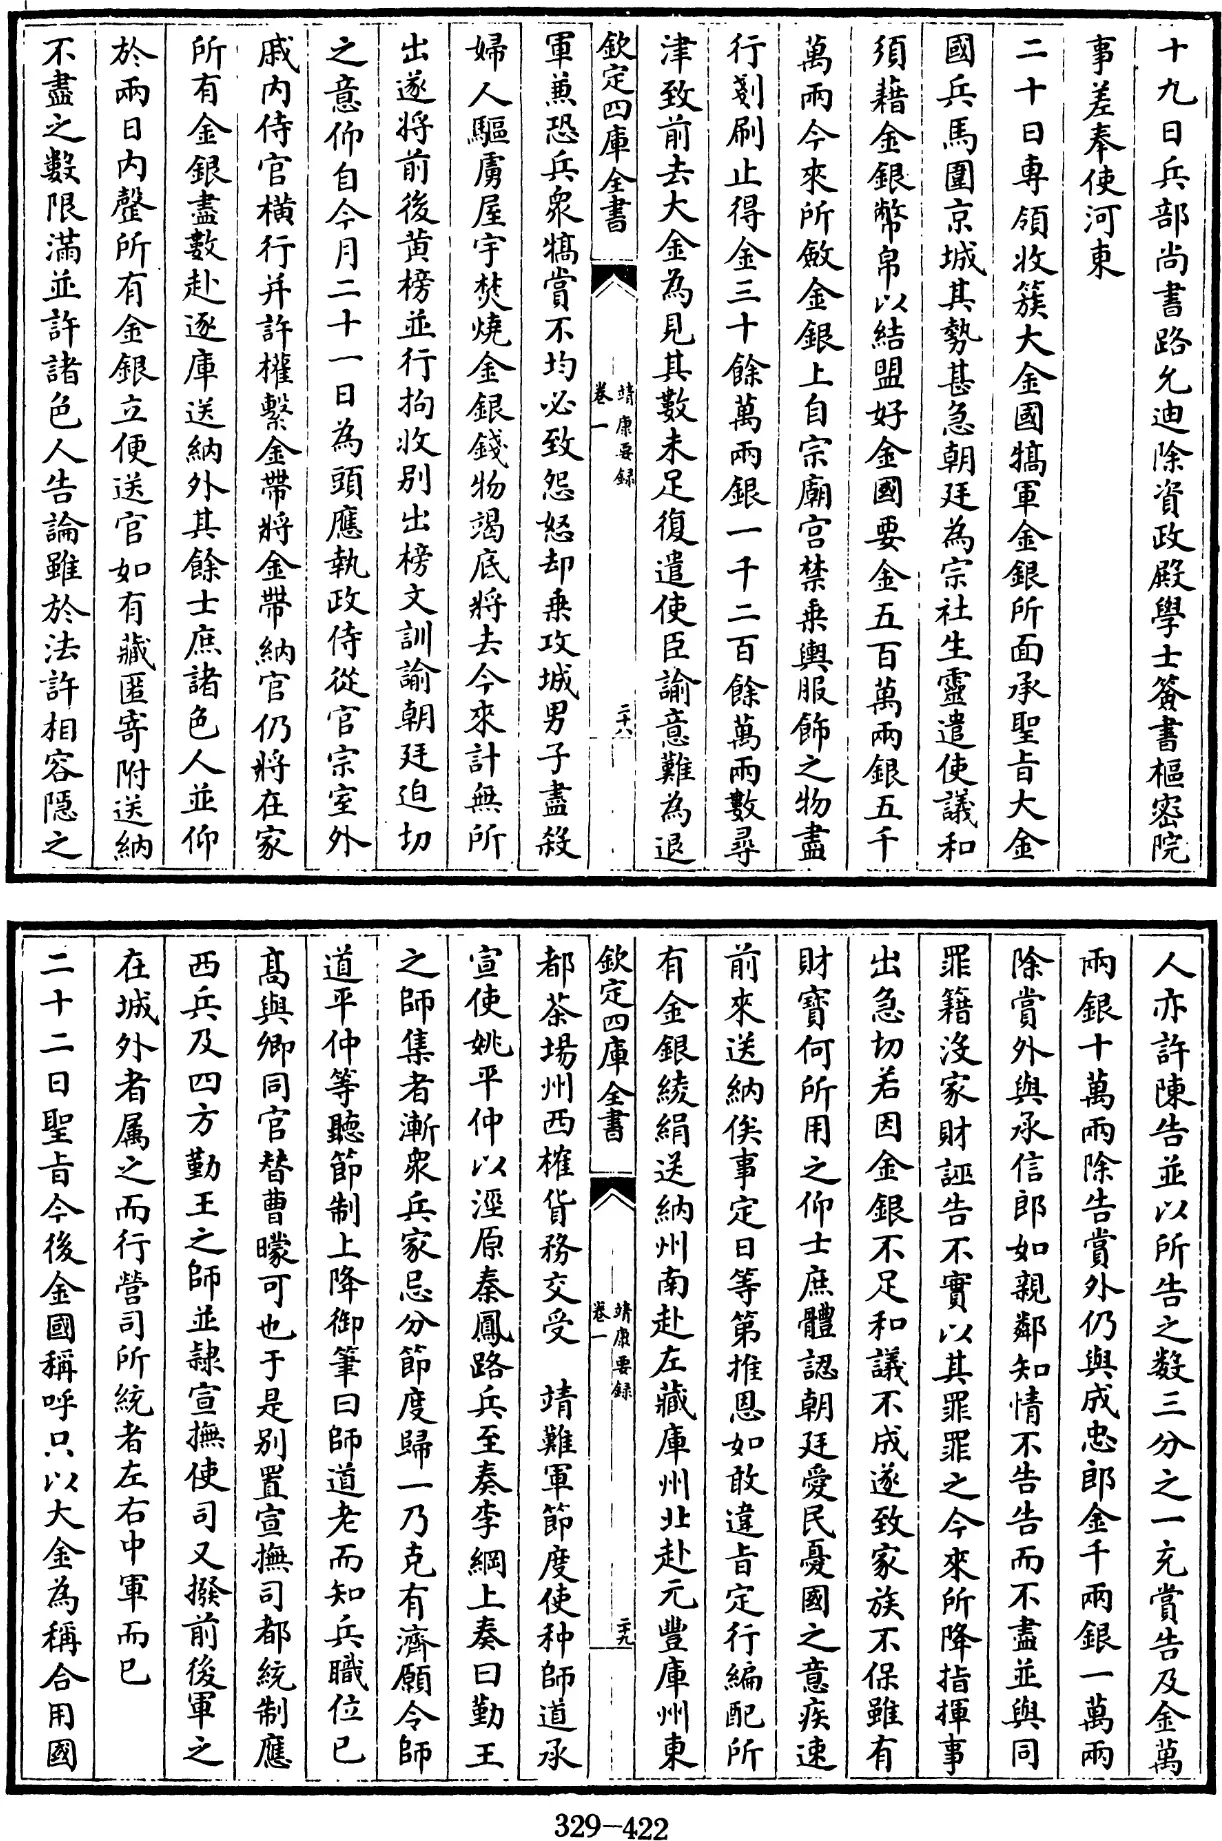 十九日兵部尚書路允迪除資政殿學士簽書樞密院
事差奉使河東
二十日專領收簇大金國犒軍金銀所面承聖旨大金
國兵馬圍京城其勢甚急朝廷為宗社生靈遣使議和
須藉金銀幣帛以結盟好金國要金五百萬兩銀五千
萬兩今來所斂金銀上自宗廟宫禁乗輿服飾之物盡
行剗刷止得金三十餘萬兩銀一千二百餘萬兩數尋
津致前去大金為見其數未足復遣使臣諭意難為退
欽定四庫全書
靖康要録
卷一
二十八
軍兼恐兵衆犒賞不均必致怨怒却乗攻城男子盡殺
婦人驅虜屋宇焚燒金銀錢物竭底將去今來計無所
出遂將前後黄榜並行拘收别出榜文訓諭朝廷迫切
之意仰自今月二十一日為頭應執政侍從官宗室外
戚内侍官橫行并許權繫金帶將金帶納官仍將在家
所有金銀盡數赴逐庫送納外其餘士庶諸色人並仰
於兩日内罄所有金銀立便送官如有藏匿寄附送納
不盡之數限滿並許諸色人告論雖於法許相容隠之
人亦許陳告並以所告之數三分之一充賞告及金萬
兩銀十萬兩除告賞外仍與成忠郎金千兩銀一萬兩
除賞外與承信郎如親鄰知情不告告而不盡並與同
罪籍沒家財誣告不實以其罪罪之今來所降指揮事
出急切若因金銀不足和議不成遂致家族不保雖有
財寳何所用之仰士庶體認朝廷愛民憂國之意疾速
前來送納俟事定日等第推恩如敢違旨定行編配所
有金銀綾絹送納州南赴左藏庫州北赴元豐庫州東
欽定四庫全書
靖康要録
卷一
二十九
都茶場州西榷貨務交受　靖難軍節度使种師道承
宣使姚平仲以涇原秦鳳路兵至奏李綱上奏曰勤王
之師集者漸衆兵家忌分節度歸一乃克有濟願令師
道平仲等聽節制上降御筆曰師道老而知兵職位已
髙與卿同官替曹曚可也于是别置宣撫司都統制應
西兵及四方勤王之師並隷宣撫使司又撥前後軍之
在城外者属之而行營司所統者左右中軍而已
二十二日聖旨今後金國稱呼只以大金為稱合用國
329-422